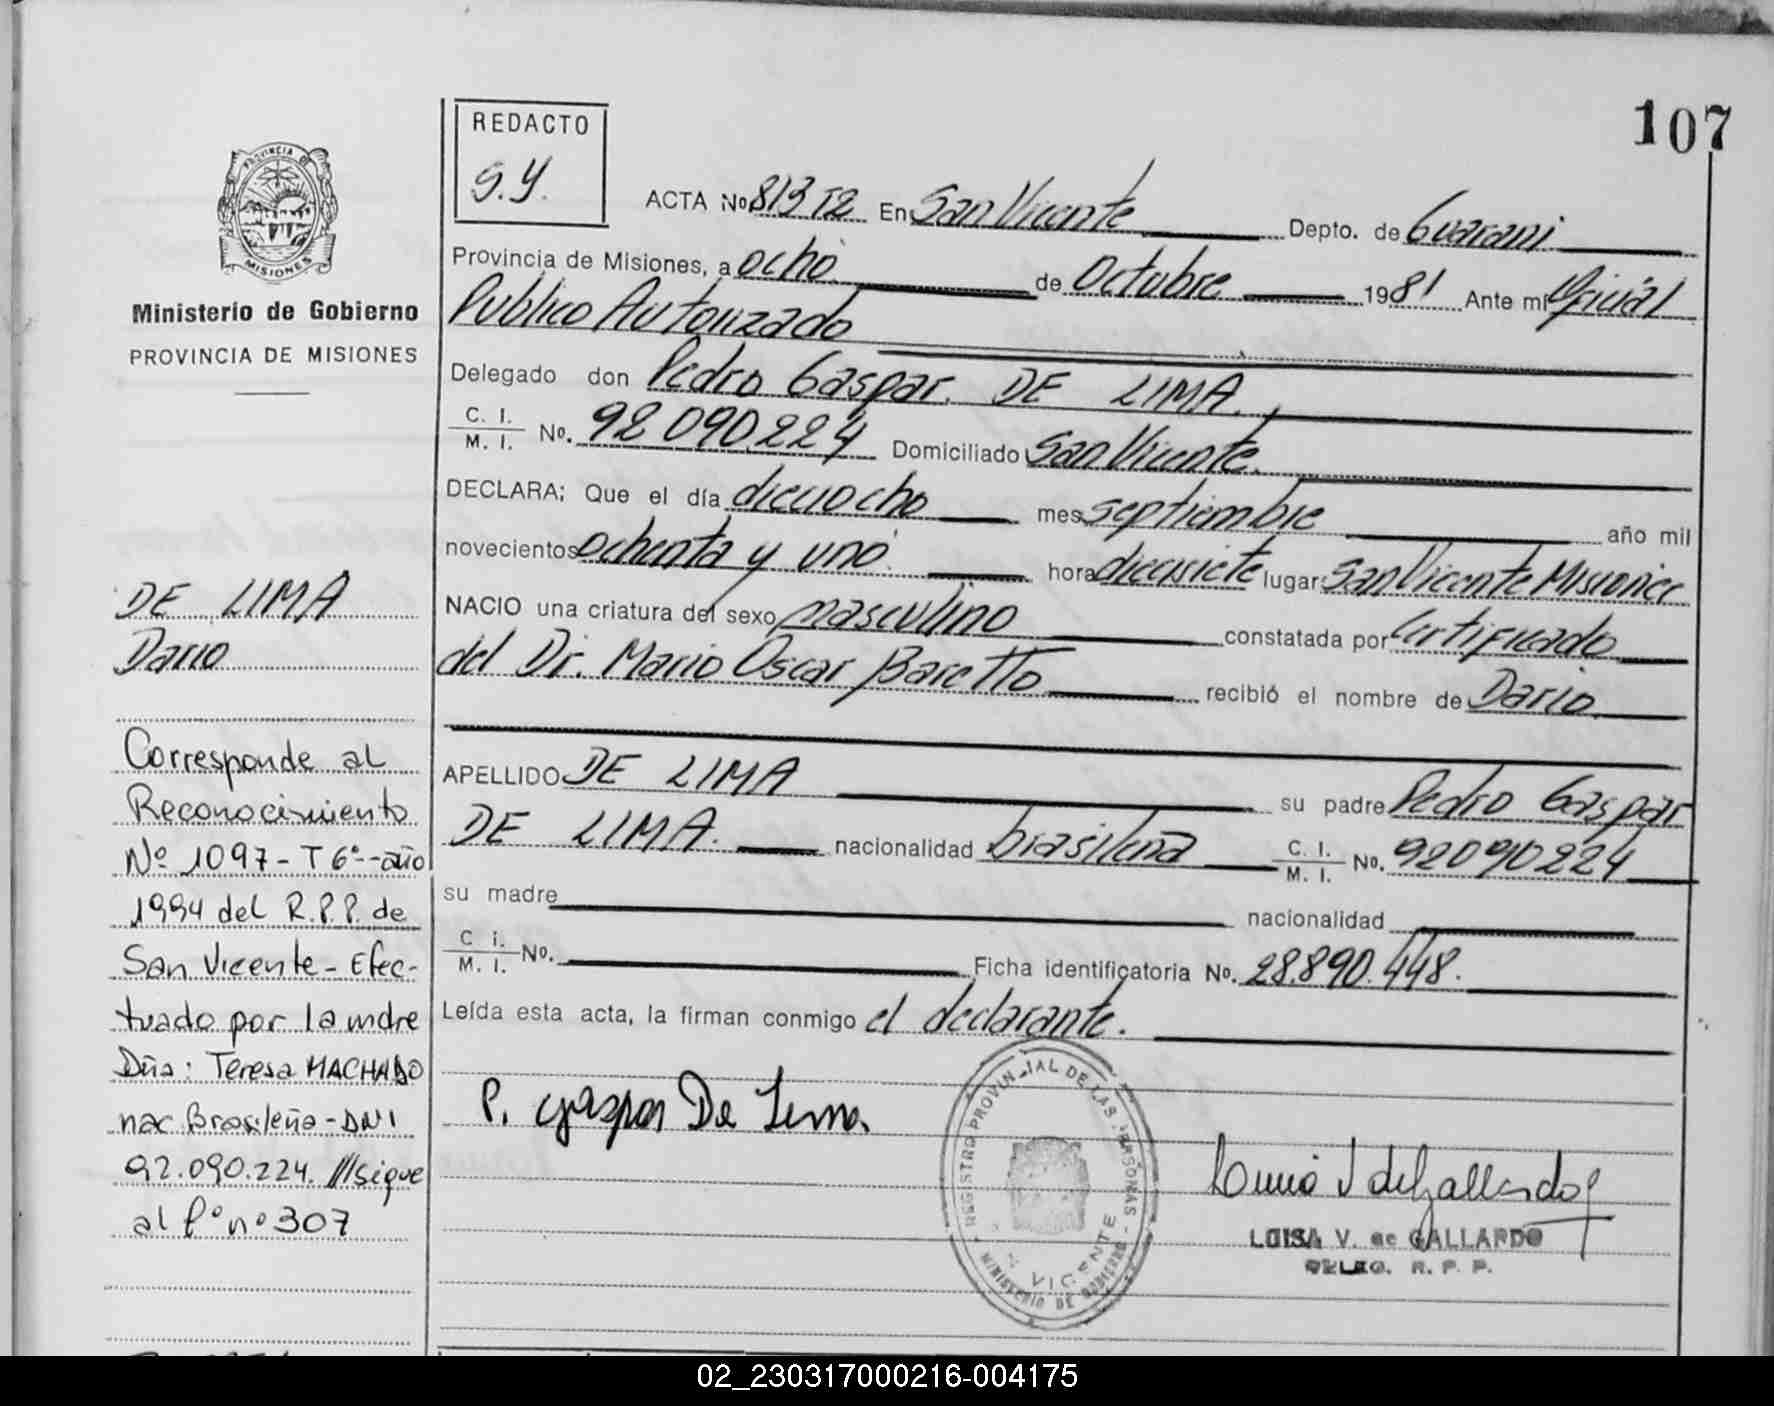 107
REDACTO
S.Y.
PROVINCIA DE
MISIONES
Ministerio de Gobierno
PROVINCIA DE MISIONES
ACTA No 813 T2 En San Vicente Depto. de Guarani
Provincia de Misiones, a ocho de Octubre 1981 Ante mí Oficial
Publico Autorizado
Delegado don Pedro Gaspar. DE LIMA.
C. I. / M. I. No. 92 090.224 Domiciliado San Vicente.
DECLARA; Que el día dieciocho mes septiembre año mil
novecientos ochenta y uno hora diecisiete lugar San Vicente Misiones
NACIO una criatura del sexo masculino constatada por Certificado
del Dr. Mario Oscar Baretto recibió el nombre de Dario
APELLIDO DE LIMA su padre Pedro Gaspar
DE LIMA. nacionalidad brasileña C. I. / M. I. No. 92090224
su madre nacionalidad
C i. / M. I. No. Ficha identificatoria No. 28.890.448.
Leída esta acta, la firman conmigo el declarante.
P. gaspar De Lima.
REGISTRO PROVINCIAL DE LAS PERSONAS
VICENTE
MINISTERIO DE GOBIERNO
LUISA V. de GALLARDO
DELEG. R. P. P.
DE LIMA
Dario
Corresponde al
Reconocimiento
Nº 1097 - T 6º - año
1994 del R.P.P. de
San Vicente - Efec-
tuado por la mdre
Dña: Teresa MACHADO
nac Brasileña - DNI
92.090.224. ///sigue
al fº nº 307
02_230317000216-004175